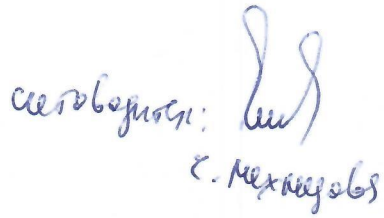 счетоводител:
С. Мехмедова